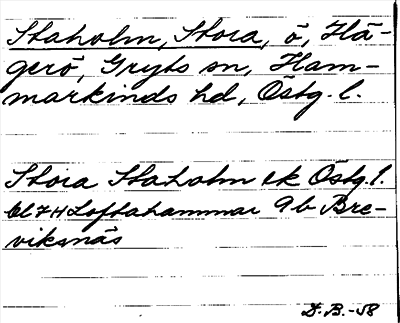 Staholm, Stora, ö, Hä-
gerö, Gryts sn, Ham-
markinds hd, Östg. l.
Stora Staholm ek Östg. l.
Bl 7H Loftahammar 9b Bre-
viksnäs
D. B. -58